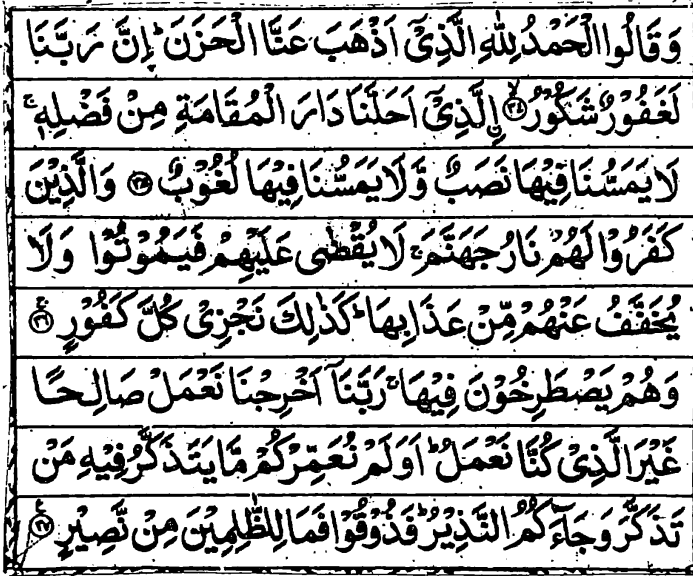 وَقَالُوا الْحَمْدُ لِلّٰهِ الَّذِیْۤ اَذْهَبَ عَنَّا الْحَزَنَ ؕ اِنَّ رَبَّنَا
لَغَفُوْرٌ شَكُوْرُ ۙ﴿۳۴﴾ اِلَّذِیْۤ اَحَلَّنَا دَارَ الْمُقَامَةِ مِنْ فَضْلِهٖ ۚ
لَا یَمَسُّنَا فِیْهَا نَصَبٌ وَّلَا یَمَسُّنَا فِیْهَا لُغُوْبٌ ﴿۳۵﴾ وَالَّذِیْنَ
كَفَرُوْا لَهُمْ نَارُ جَهَنَّمَ ۚ لَا یُقْضٰی عَلَیْهِمْ فَیَمُوْتُوْا وَلَا
یُخَفَّفُ عَنْهُمْ مِّنْ عَذَابِهَا ؕ كَذٰلِكَ نَجْزِیْ كُلَّ كَفُوْرٍ ۚ﴿۳۶﴾
وَهُمْ یَصْطَرِخُوْنَ فِیْهَا ۚ رَبَّنَاۤ اَخْرِجْنَا نَعْمَلْ صَالِحًا
غَیْرَ الَّذِیْ كُنَّا نَعْمَلُ ؕ اَوَلَمْ نُعَمِّرْكُمْ مَّا یَتَذَكَّرُ فِیْهِ مَنْ
تَذَكَّرَ وَجَآءَكُمُ النَّذِیْرُ ؕ فَذُوْقُوْا فَمَا لِلظّٰلِمِیْنَ مِنْ نَّصِیْرٍ ﴿۳۷﴾